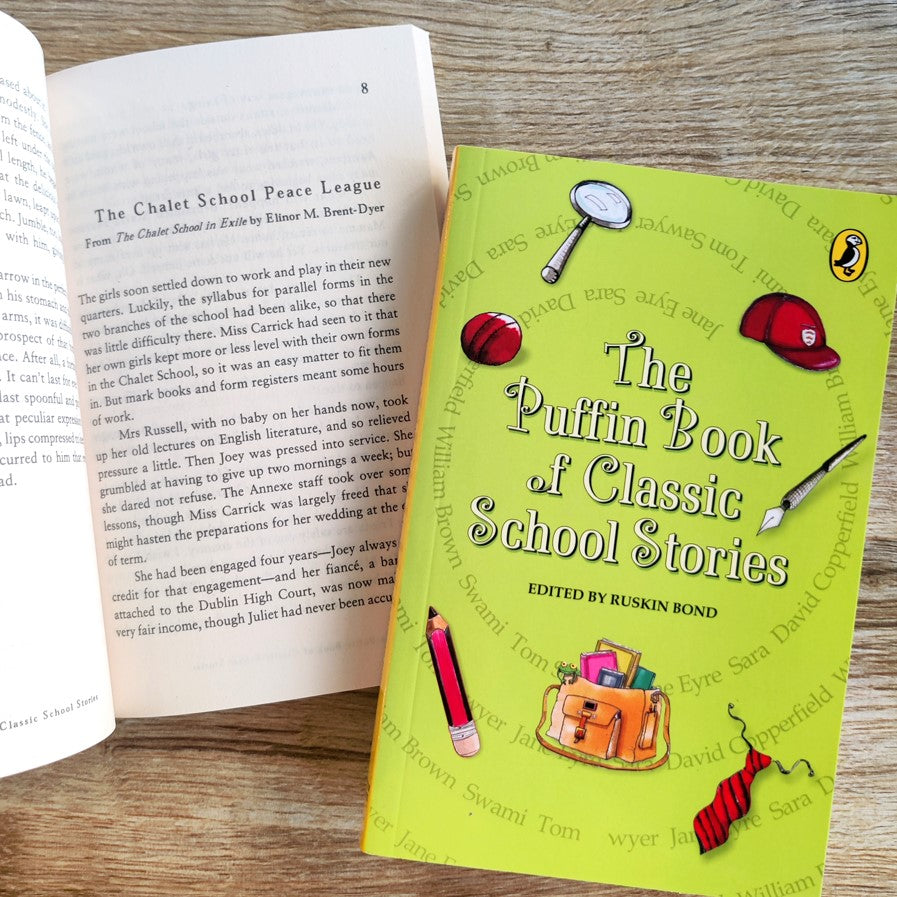 modestly.
left under the
length, he
at the
lawn, leapt
Jumble,
with him,
arrow in the
his stomach and
arms, it was
prospect of
After all, a
It can't last for
last spoonful and
at peculiar expression
lips compressed
occurred to him
Classic School Stories
8
The Chalet School Peace League
From The Chalet School in Exile by Elinor M. Brent-Dyer
The girls soon settled down to work and play in their new
quarters. Luckily, the syllabus for parallel forms in the
two branches of the school had been alike, so that there
was little difficulty there. Miss Carrick had seen to it that
her own girls kept more or less level with their own forms
in the Chalet School, so it was an easy matter to fit them
in. But mark books and form registers meant some hours
of work.
Mrs Russell, with no baby on her hands now, took
up her old lectures on English literature, and so relieved
pressure a little. Then Joey was pressed into service. She
grumbled at having to give up two mornings a week; but
she dared not refuse. The Annexe staff took over some
lessons, though Miss Carrick was largely freed that s
might hasten the preparations for her wedding at the e
of term.
She had been engaged four years—Joey always
credit for that engagement—and her fiancé, a bar
attached to the Dublin High Court, was now ma
very fair income, though Juliet had never been accu
The
Puffin Book
of Classic
School Stories
EDITED BY RUSKIN BOND
Brown Swami
David Sara Eyre
Tom Sawyer
David
Jane Eyre Sara David
William Brown Swami Tom
Eyre Sara David Copperfield
William
Brown Swami Tom
Jane Eyre Sara
David Copperfield
William
Jane Eyre